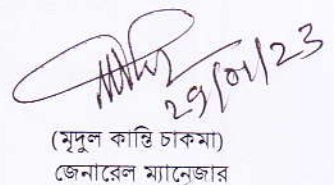 29/01/23
(মৃদুল কান্তি চাকমা)
জেনারেল ম্যানেজার